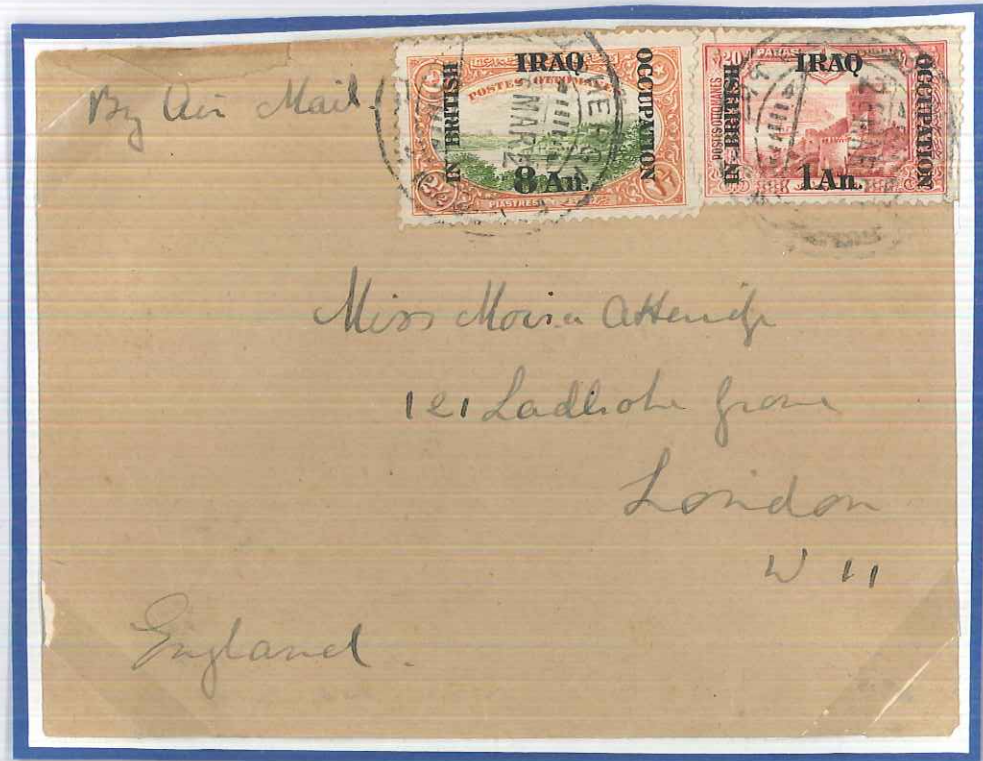 By Air Mail
IRAQ
IN BRITISH
OCCUPATION
POSTES OTTOMANES
8 An.
2½
PIASTRES
MAR 2
IRAQ
IN BRITISH
OCCUPATION
20 PARAS
POSTES OTTOMANES
1 An.
MAR
Miss Moira Attenidge
121 Ladbroke Grove
London
W 11
England.